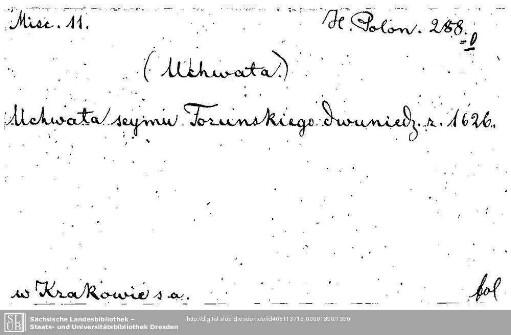 Misc. 11.
H. Polon. 288.
(Uchwata.)
Uchwata seymu Torunskiego dwuniedz. r. 1626.
w Krakowie s a.
fol
Sächsische Landesbibliothek –
Staats- und Universitätsbibliothek Dresden